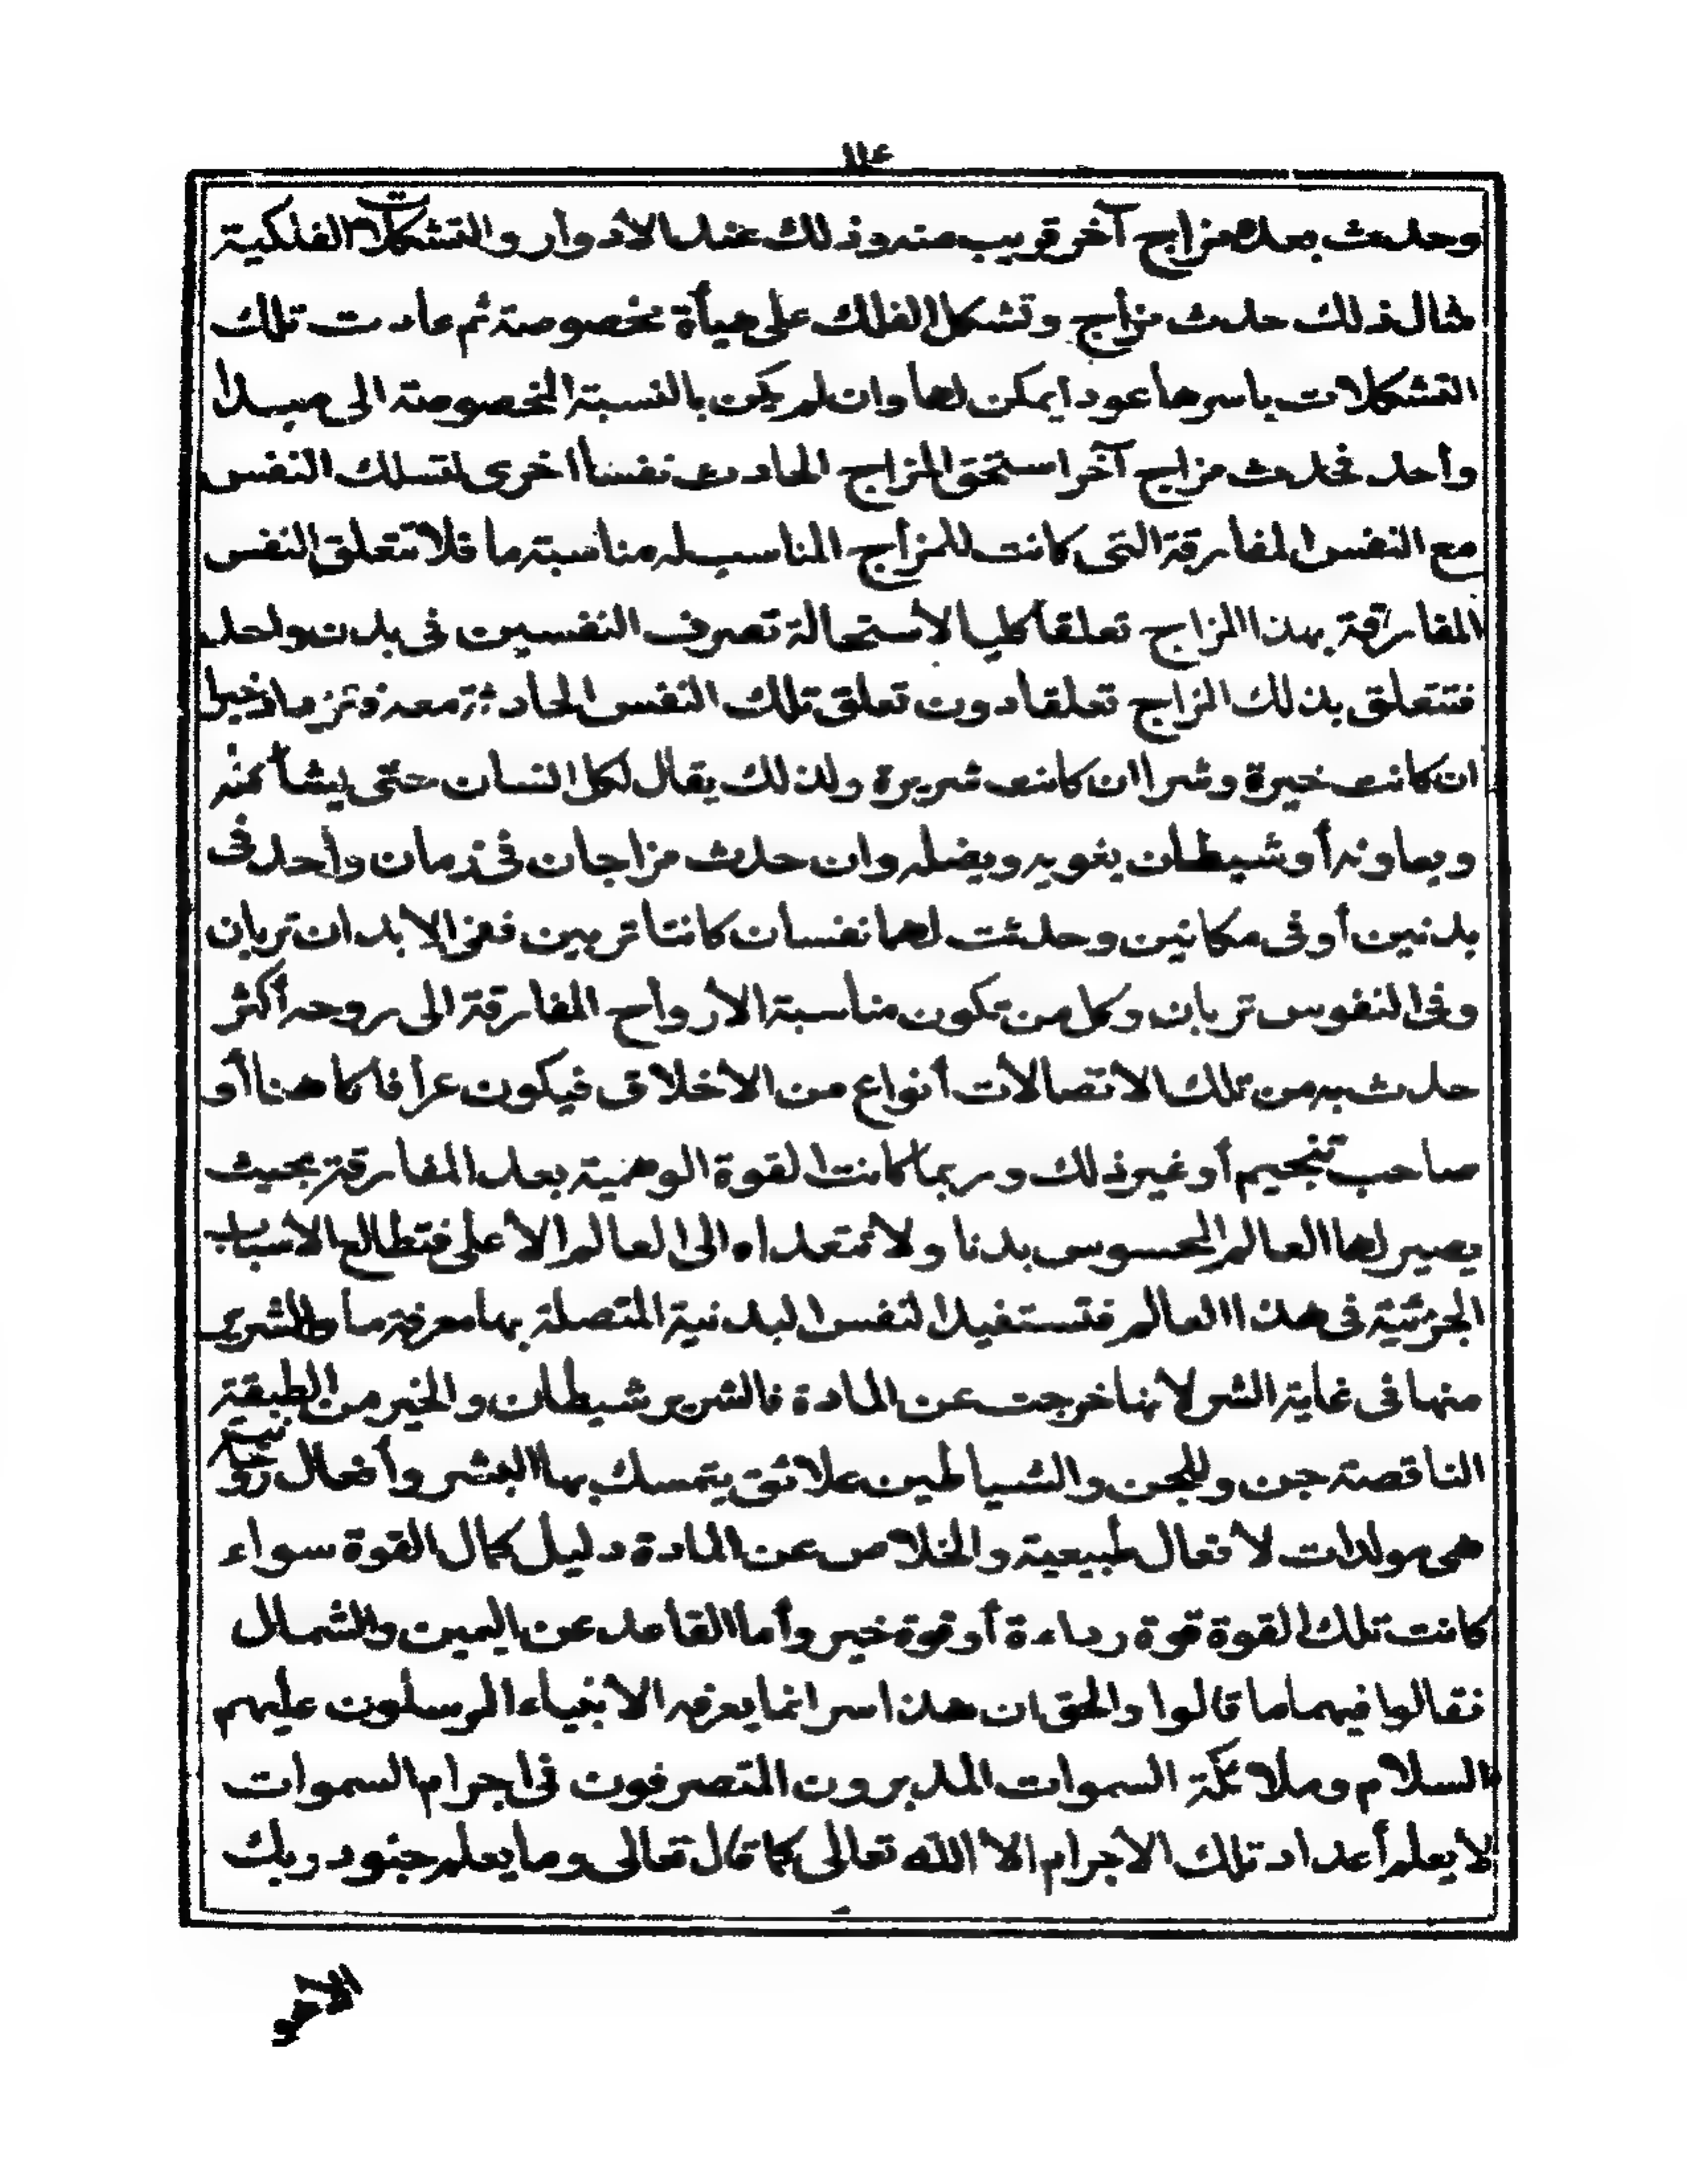 وحدث بعده مزاج آخر قريب منه وذلك عند الأدوار والتشكلات الفلكية
مثال ذلك حدث مزاج وتشكل الفلك على هيأة مخصوصة ثم عادت تلك
التشكلات باسرها عودا يمكن لها وان لم يكن بالنسبة المخصوصة الى مبدأ
واحد فحدث مزاج آخر استحق المزاج الحادث نفسا اخرى لتسلك النفس
مع النفس المفارقة التى كانت للمزاج المناسب له مناسبة ما فلا تتعلق النفس
المفارقة بهذا المزاج تعلقا كليا لاستحالة تصرف النفسين فى بدن واحد
فتتعلق بذلك المزاج تعلقا دون تعلق تلك النفس الحادثة معه
ان كانت خيرة وشرا ان كانت شريرة ولذلك يقال لكل انسان حتى يشأ منه
ويعاونه أو شيطان يغويه ويضله وان حدث مزاجان فى زمان واحد فى
بدنين أو فى مكانين وحدثت لهما نفسان كانتا تربين ففى الابدان تربان
وفى النفوس تربان وكل من تكون مناسبة الأرواح المفارقة الى روحه أكثر
حدث به من تلك الاتصالات أنواع من الاخلاق فيكون عرافا كاهنا أو
صاحب تنجيم أو غير ذلك وربما كانت القوة الوهمية بعد المفارقة بحيث
يصير لها العالم المحسوس بدنا ولا تتعداه الى العالم الأعلى فتطالع الأسباب
الجزئية فى هذا العالم فتستفيد النفس البدنية المتصلة بها معرفة ما والشرير
منها فى غاية الشر لانها خرجت عن المادة فالشرير شيطان والخير من الطبقة
الناقصة جن وللجن والشياطين علائق يتمسك بها البشر وأفعال روحانية
هى مولدات لافعال طبيعية والخلاص عن المادة دليل كمال القوة سواء
كانت تلك القوة قوة رداءة أو قوة خير وأما القاعد عن اليمين والشمال
فقالوا فيهما ما قالوا والحق ان هذا سر انما يعرفه الانبياء المرسلون عليهم
السلام وملائكة السموات المدبرون المتصرفون فى اجرام السموات
لا يعلم أعداد تلك الاجرام الا الله تعالى كما قال تعالى وما يعلم جنود ربك
الا هو